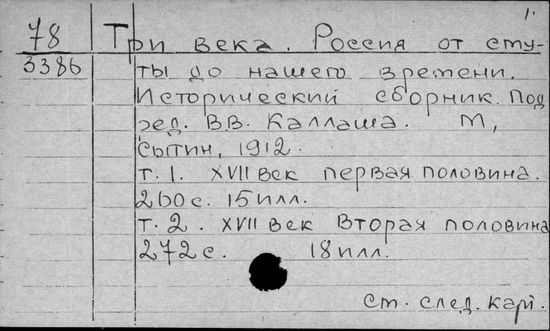 1.
78 Три века. Россия от сму-
3386 ты до нашего времени.
Исторический сборник. Под
ред. В.В. Каллаша. М,
Сытин, 1912.
т. 1. XVII век первая половина.
260 с. 15 илл.
т. 2. XVII век Вторая половина
272 с. 18 илл.
См. след. карт.